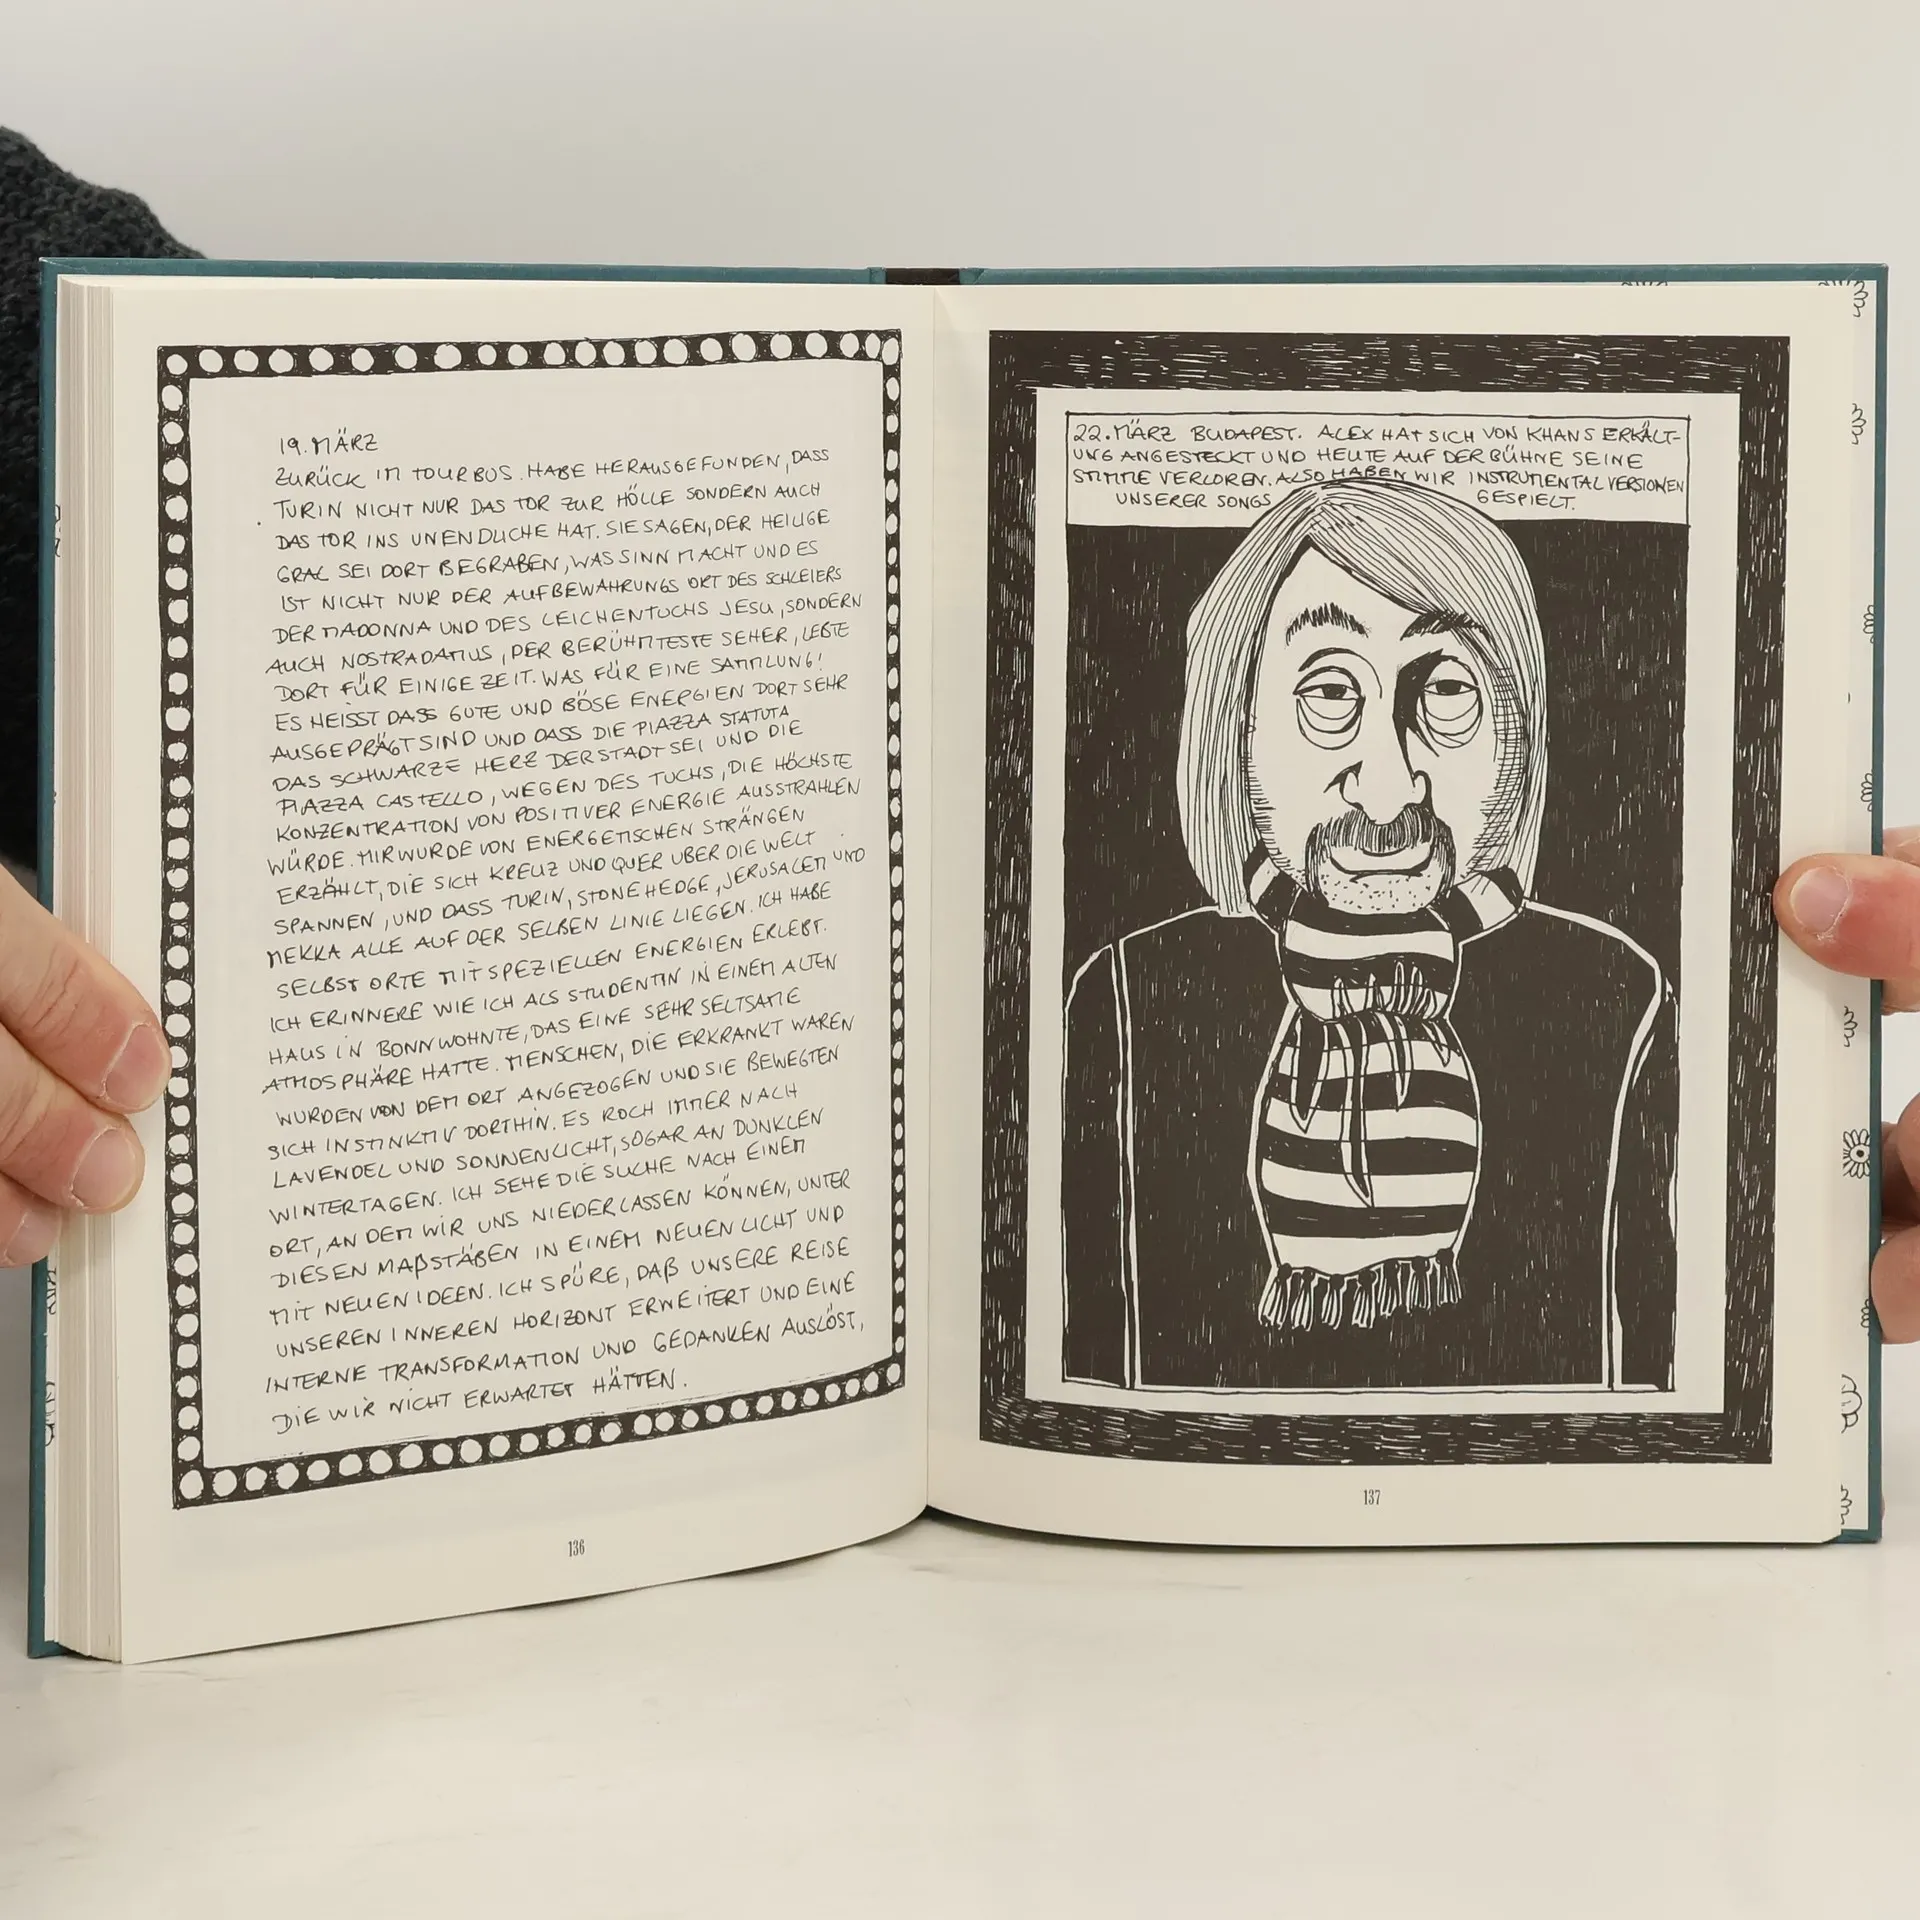 19. MÄRZ
ZURÜCK IM TOURBUS. HABE HERAUSGEFUNDEN, DASS
TURIN NICHT NUR DAS TOR ZUR HÖLLE SONDERN AUCH
DAS TOR INS UNENDLICHE HAT. SIE SAGEN, DER HEILIGE
GRAL SEI DORT BEGRABEN, WAS SINN MACHT UND ES
IST NICHT NUR DER AUFBEWAHRUNGS ORT DES SCHLEIERS
DER MADONNA UND DES LEICHENTUCHS JESU, SONDERN
AUCH NOSTRADAMUS, DER BERÜHMTESTE SEHER, LEBTE
DORT FÜR EINIGE ZEIT. WAS FÜR EINE SAMMLUNG!
ES HEISST DASS GUTE UND BÖSE ENERGIEN DORT SEHR
AUSGEPRÄGT SIND UND DASS DIE PIAZZA STATUTA
DAS SCHWARZE HERZ DER STADT SEI UND DIE
PIAZZA CASTELLO, WEGEN DES TUCHS, DIE HÖCHSTE
KONZENTRATION VON POSITIVER ENERGIE AUSSTRAHLEN
WÜRDE. MIR WURDE VON ENERGETISCHEN STRÄNGEN
ERZÄHLT, DIE SICH KREUZ UND QUER ÜBER DIE WELT
SPANNEN, UND DASS TURIN, STONEHEDGE, JERUSALEM UND
MEKKA ALLE AUF DER SELBEN LINIE LIEGEN. ICH HABE
SELBST ORTE MIT SPEZIELLEN ENERGIEN ERLEBT.
ICH ERINNERE WIE ICH ALS STUDENTIN IN EINEM ALTEN
HAUS IN BONN WOHNTE, DAS EINE SEHR SELTSAME
ATMOSPHÄRE HATTE. MENSCHEN, DIE ERKRANKT WAREN
WURDEN VON DEM ORT ANGEZOGEN UND SIE BEWEGTEN
SICH INSTINKTIV DORTHIN. ES ROCH IMMER NACH
LAVENDEL UND SONNENLICHT, SOGAR AN DUNKLEN
WINTERTAGEN. ICH SEHE DIE SUCHE NACH EINEM
ORT, AN DEM WIR UNS NIEDERLASSEN KÖNNEN, UNTER
DIESEN MAßSTÄBEN IN EINEM NEUEN LICHT UND
MIT NEUEN IDEEN. ICH SPÜRE, DAß UNSERE REISE
UNSEREN INNEREN HORIZONT ERWEITERT UND EINE
INTERNE TRANSFORMATION UND GEDANKEN AUSLÖST,
DIE WIR NICHT ERWARTET HÄTTEN.
136
22. MÄRZ BUDAPEST. ALEX HAT SICH VON KHANS ERKÄLT-
UNG ANGESTECKT UND HEUTE AUF DER BÜHNE SEINE
STIMME VERLOREN. ALSO HABEN WIR INSTRUMENTAL VERSIONEN
UNSERER SONGS GESPIELT.
137